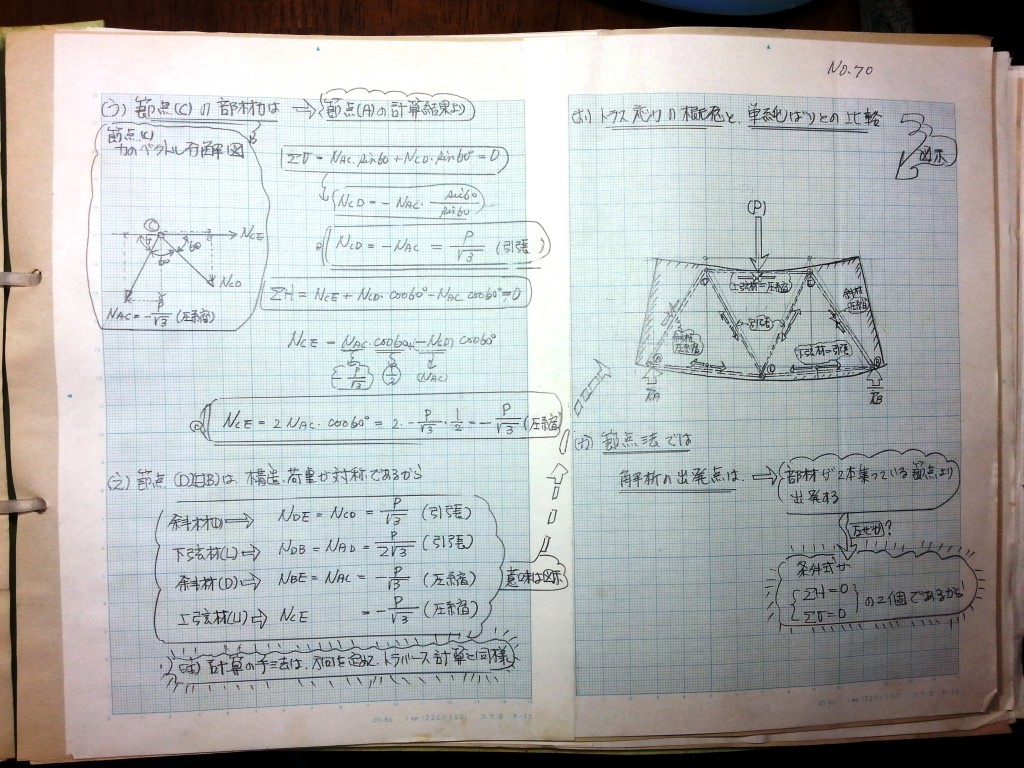 NO.70
(う) 節点(C)の部材力は ⇒ 節点(A)の計算結果より
節点(C)
力のベクトル分解図
C
NCE
60°
60°
NCD
NAC = -P/√3 (圧縮)
ΣV = NAC・sin60 + NCD・sin60° = 0
NCD = -NAC・sin60/sin60
NCD = -NAC = P/√3 (引張)
ΣH = NCE + NCD・cos60° - NAC cos60° = 0
NCE = NAC・cos60 - NCD cos60°
-P/√3 1/2 (NAC)
NCE = 2 NAC・cos60° = 2・-P/√3・1/2 = -P/√3 (圧縮)
(え) 節点(D)(E)(B)は、構造、荷重が対称であるから
斜材(D) ⇒ NDE = NCD = P/√3 (引張)
下弦材(L) ⇒ NDB = NAD = P/2√3 (引張)
斜材(D) ⇒ NBE = NAC = -P/√3 (圧縮)
上弦材(U) ⇒ NCE = -P/√3 (圧縮)
意味は図示
(注) 計算の手法は、方向を定めて、トラバース計算と同様
(お) トラス応力の概念と、単純ばりとの比較
図示
(P)
上弦材=圧縮
斜材
圧縮
引張
斜材
圧縮
下弦材=引張
RA
RB
(か) 節点法では
解析の出発点は、 ⇒ 部材が2本集っている節点より
出発する
なぜか?
条件式が
ΣH=0
ΣV=0
の2個であるから